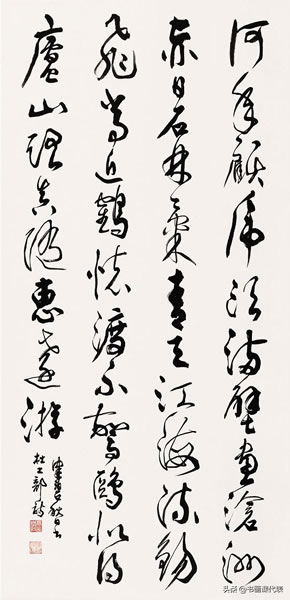 何年顧虎頭滿壁畫滄洲
赤日石林氣青天江海流錫
飛常近鶴杯渡不驚鷗似得
廬山路真隨惠遠游
秋日書
杜工部詩
头条 @书画课代表